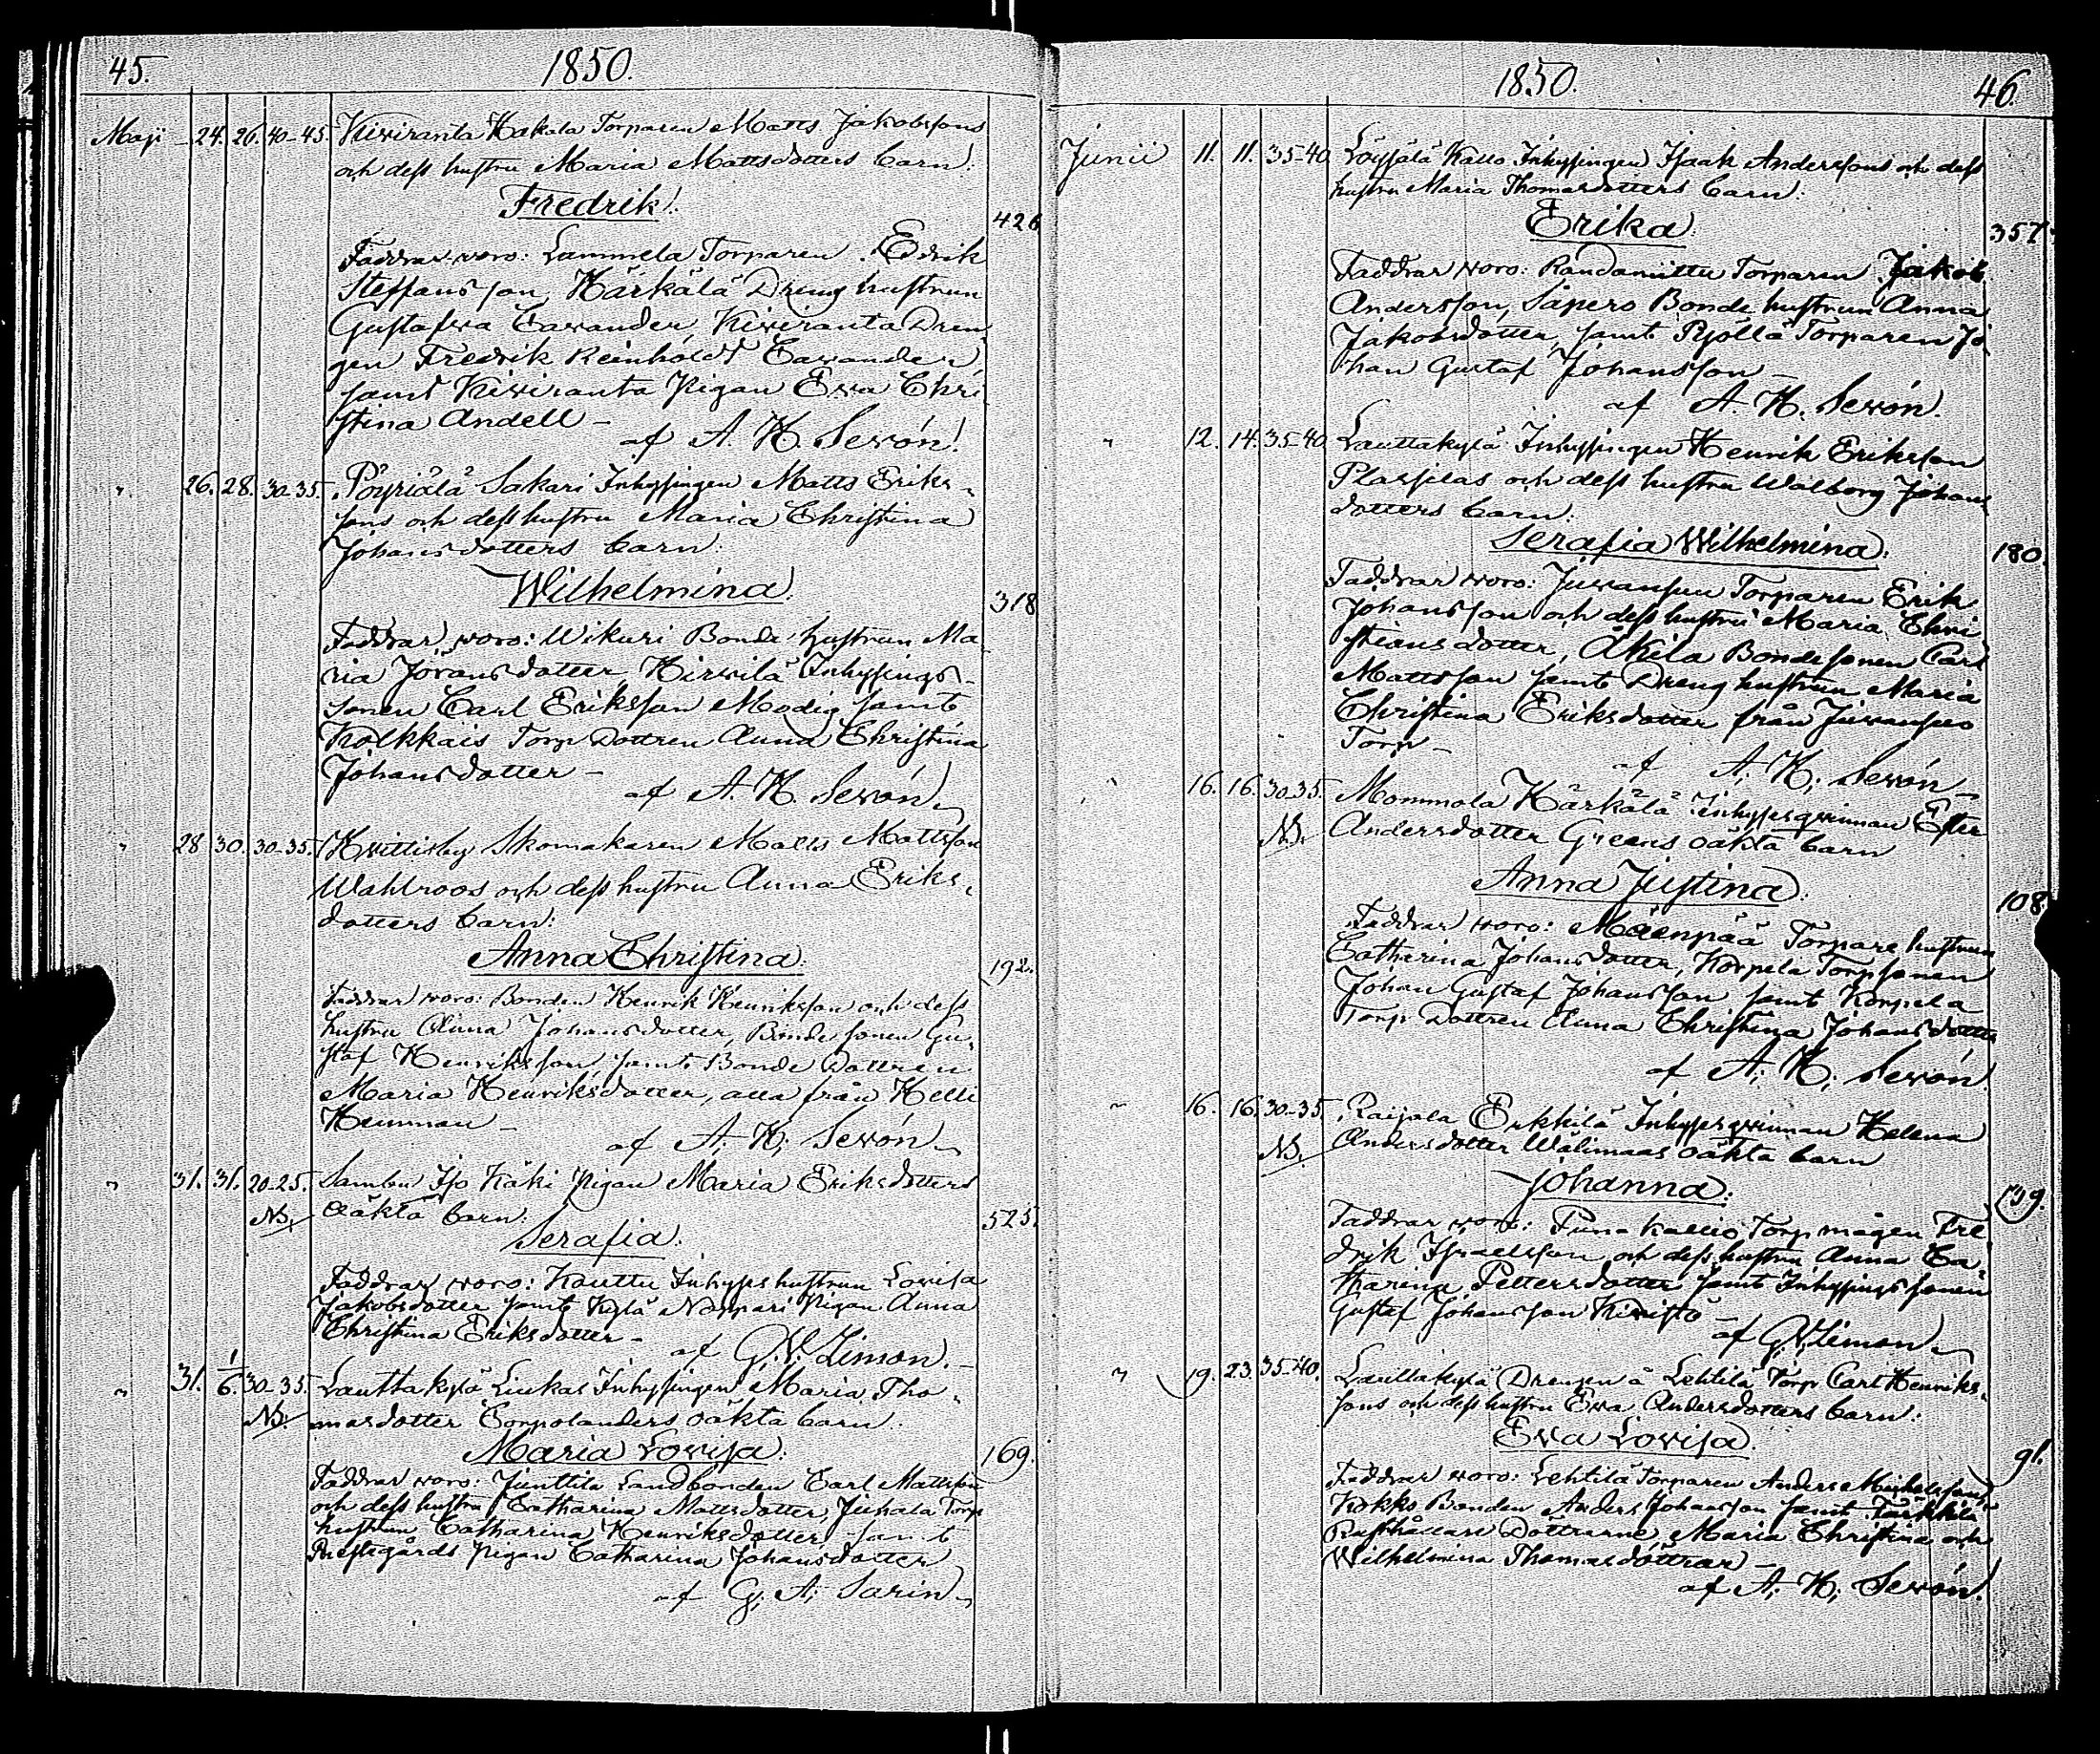 45. 1850.
Maji 24. 26. 40-45. Kiviranta Hakala Torparen Matts Jakobssons
och dess hustru Maria Mattsdotters barn:
Fredrik.
426
Faddrar woro: Lammela Torparen Edrik
Steffansson, Härkälä Dreng hustrun
Gustafwa Cawander, Kiviranta Dren
gen Fredrik Reinholdt Cawander
samt Kiviranta Pigan Ewa Chri
stina Andell –
af A. H. Sewón.
" 26. 28. 30-35. Pöyriälä Sakari Inhysingen Matts Eriks-
sons och dess hustru Maria Christina
Johansdotters barn:
Wilhelmina.
318
Faddrar woro: Wikuri Bonde hustrun Ma
ria Jöransdotter, Hirwilä Inhysings-
sonen Carl Eriksson Modig samt
Kolkkais Torp Dottren Anna Christina
Johansdotter –
af A. H. Sewón
" 28 30. 30-35. Kvittisby Skomakaren Matts Mattsson
Wahlroos och dess hustru Anna Eriks-
dotters barn:
Anna Christina.
192.
Faddrar woro: Bonden Henrik Henriksson och dess
hustru Anna Johansdotter, Bonde sonen Gu-
staf Henriksson, samt Bonde Dottren
Maria Henriksdotter, alla från Helli
Hemman –
af A. H. Sewón
" 31. 31. 20-25. Sambu Iso Käki Pigan Maria Eriksdotters
NB. oäkta barn:
Serafia.
525.
Faddrar woro: Kauttu Inhyses hustrun Lovisa
Jakobsdotter samt Kylä Nappari Pigan Anna
Christina Eriksdotter –
af G. W. Limon.
" 31. 1/6. 30-35. Lauttakylä Liukas Inhysingen Maria Tho-
NB. masdotter Corpolanders oäkta barn.
Maria Lovisa.
169.
Faddrar woro: Junttila Landbonden Carl Mattsson
och dess hustru Catharina Mattsdotter, Juhala Torp
hustrun Catharina Henriksdotter, samt
Prestegårds Pigan Catharina Johansdotter
af G. A. Sarin
1850. 46.
Junii 11. 11. 35-40. Löysälä Kallo Inhysingen Isaak Anderssons och dess
hustru Maria Thomasdotters barn:
Erika.
357.
Faddrar woro: Randanüttu Torparen Jakob
Andersson, Säpero Bonde hustrun Anna
Jakobsdotter, samt Pyöllä Torparen Jo
han Gustaf Johansson –
af A. H. Sewón.
" 12. 14. 35-40. Lauttakylä Inhysingen Henrik Eriksson
och dess hustru Walborg Johans
dotters barn:
Serafia Wilhelmina.
180.
Faddrar woro: Juwansuu Torparen Erik
Johansson och dess hustru Maria Chri
stiansdotter, Äkilä Bondesonen Carl
Mattsson samt Dreng hustrun Maria
Christina Eriksdotter från Juwansuu
Torp –
af A. H. Sewón
" 16. 16. 30-35. Mommola Härkälä Inhysesqwinnan Ester
NB. Andersdotter Greens oäkta barn
Anna Justina.
108
Faddrar woro: Mäenpää Torpare hustrun
Catharina Johansdotter, Korpela Torpsonen
Johan Gustaf Johansson samt Korpela
Torp Dottren Anna Christina Johansdotter
af A. H. Sewón.
" 16. 16. 30-35. Raijala Erkkilä Inhysesqwinnan Helena
NB. Andersdotter Wälimaas oäkta barn
Johanna.
139.
Faddrar woro: Puna kallio Torp mågen Fre
drik Israelsson och dess hustru Anna Ca-
tharina Pettersdotter samt Inhysings sonen
Gustaf Johansson Kivistö –
af G. W. Limon
" 19. 23. 35-40. Lauttakylä Drengen å Lehtilä Torp Carl Henriks-
sons och dess hustru Ewa Andersdotters barn:
Ewa Lovisa.
91.
Faddrar woro: Lehtilä Torparen Anders Michelsson,
Kokko Bonden Anders Johansson samt
Rusthållare Döttrarne Maria Christina och
Wilhelmina Thomasdöttrar –
af A. H. Sewón.